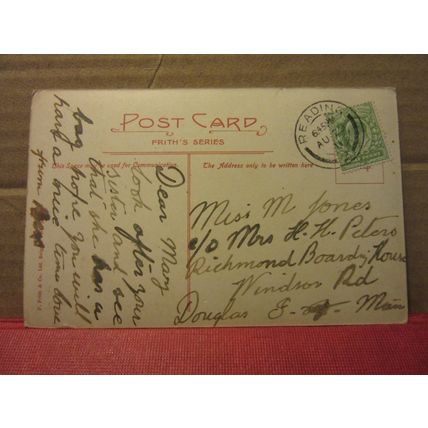 POST CARD
FRITH'S SERIES
This Space may be used for Communication
The Address only to be written here
READING
645
AU
Dear May
Look after your
sister and see
that she has a
bag hope you will
have a nice time love
from
Miss M Jones
c/o Mrs H. H. Peters
Richmond Boardg House
Windsor Rd
Douglas I - of - Man
F. Frith & Co. Ltd.